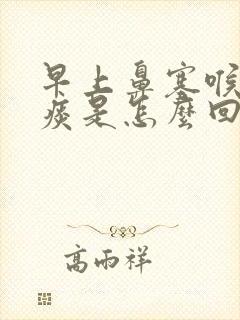 早上鼻塞喉
痰是怎麼回
高雨祥